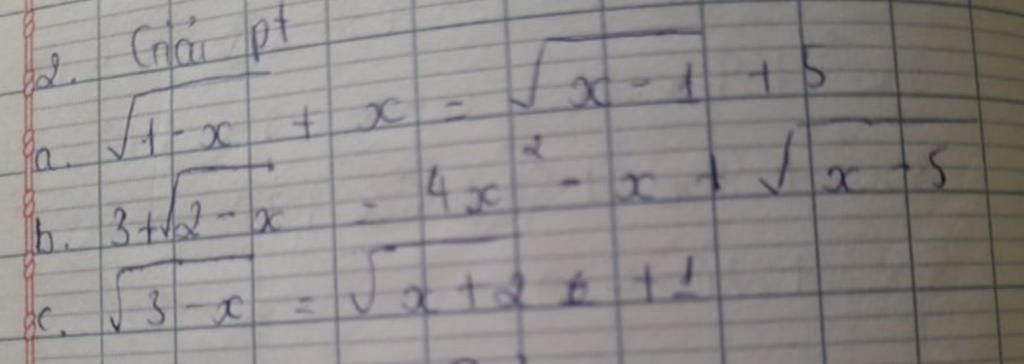 2. Giải pt
a. √(1-x) + x = √(x-1) + 5
b. 3+√(2-x) = 4x² - x + √(x-5)
c. √(3-x) = √(x+2) + 1